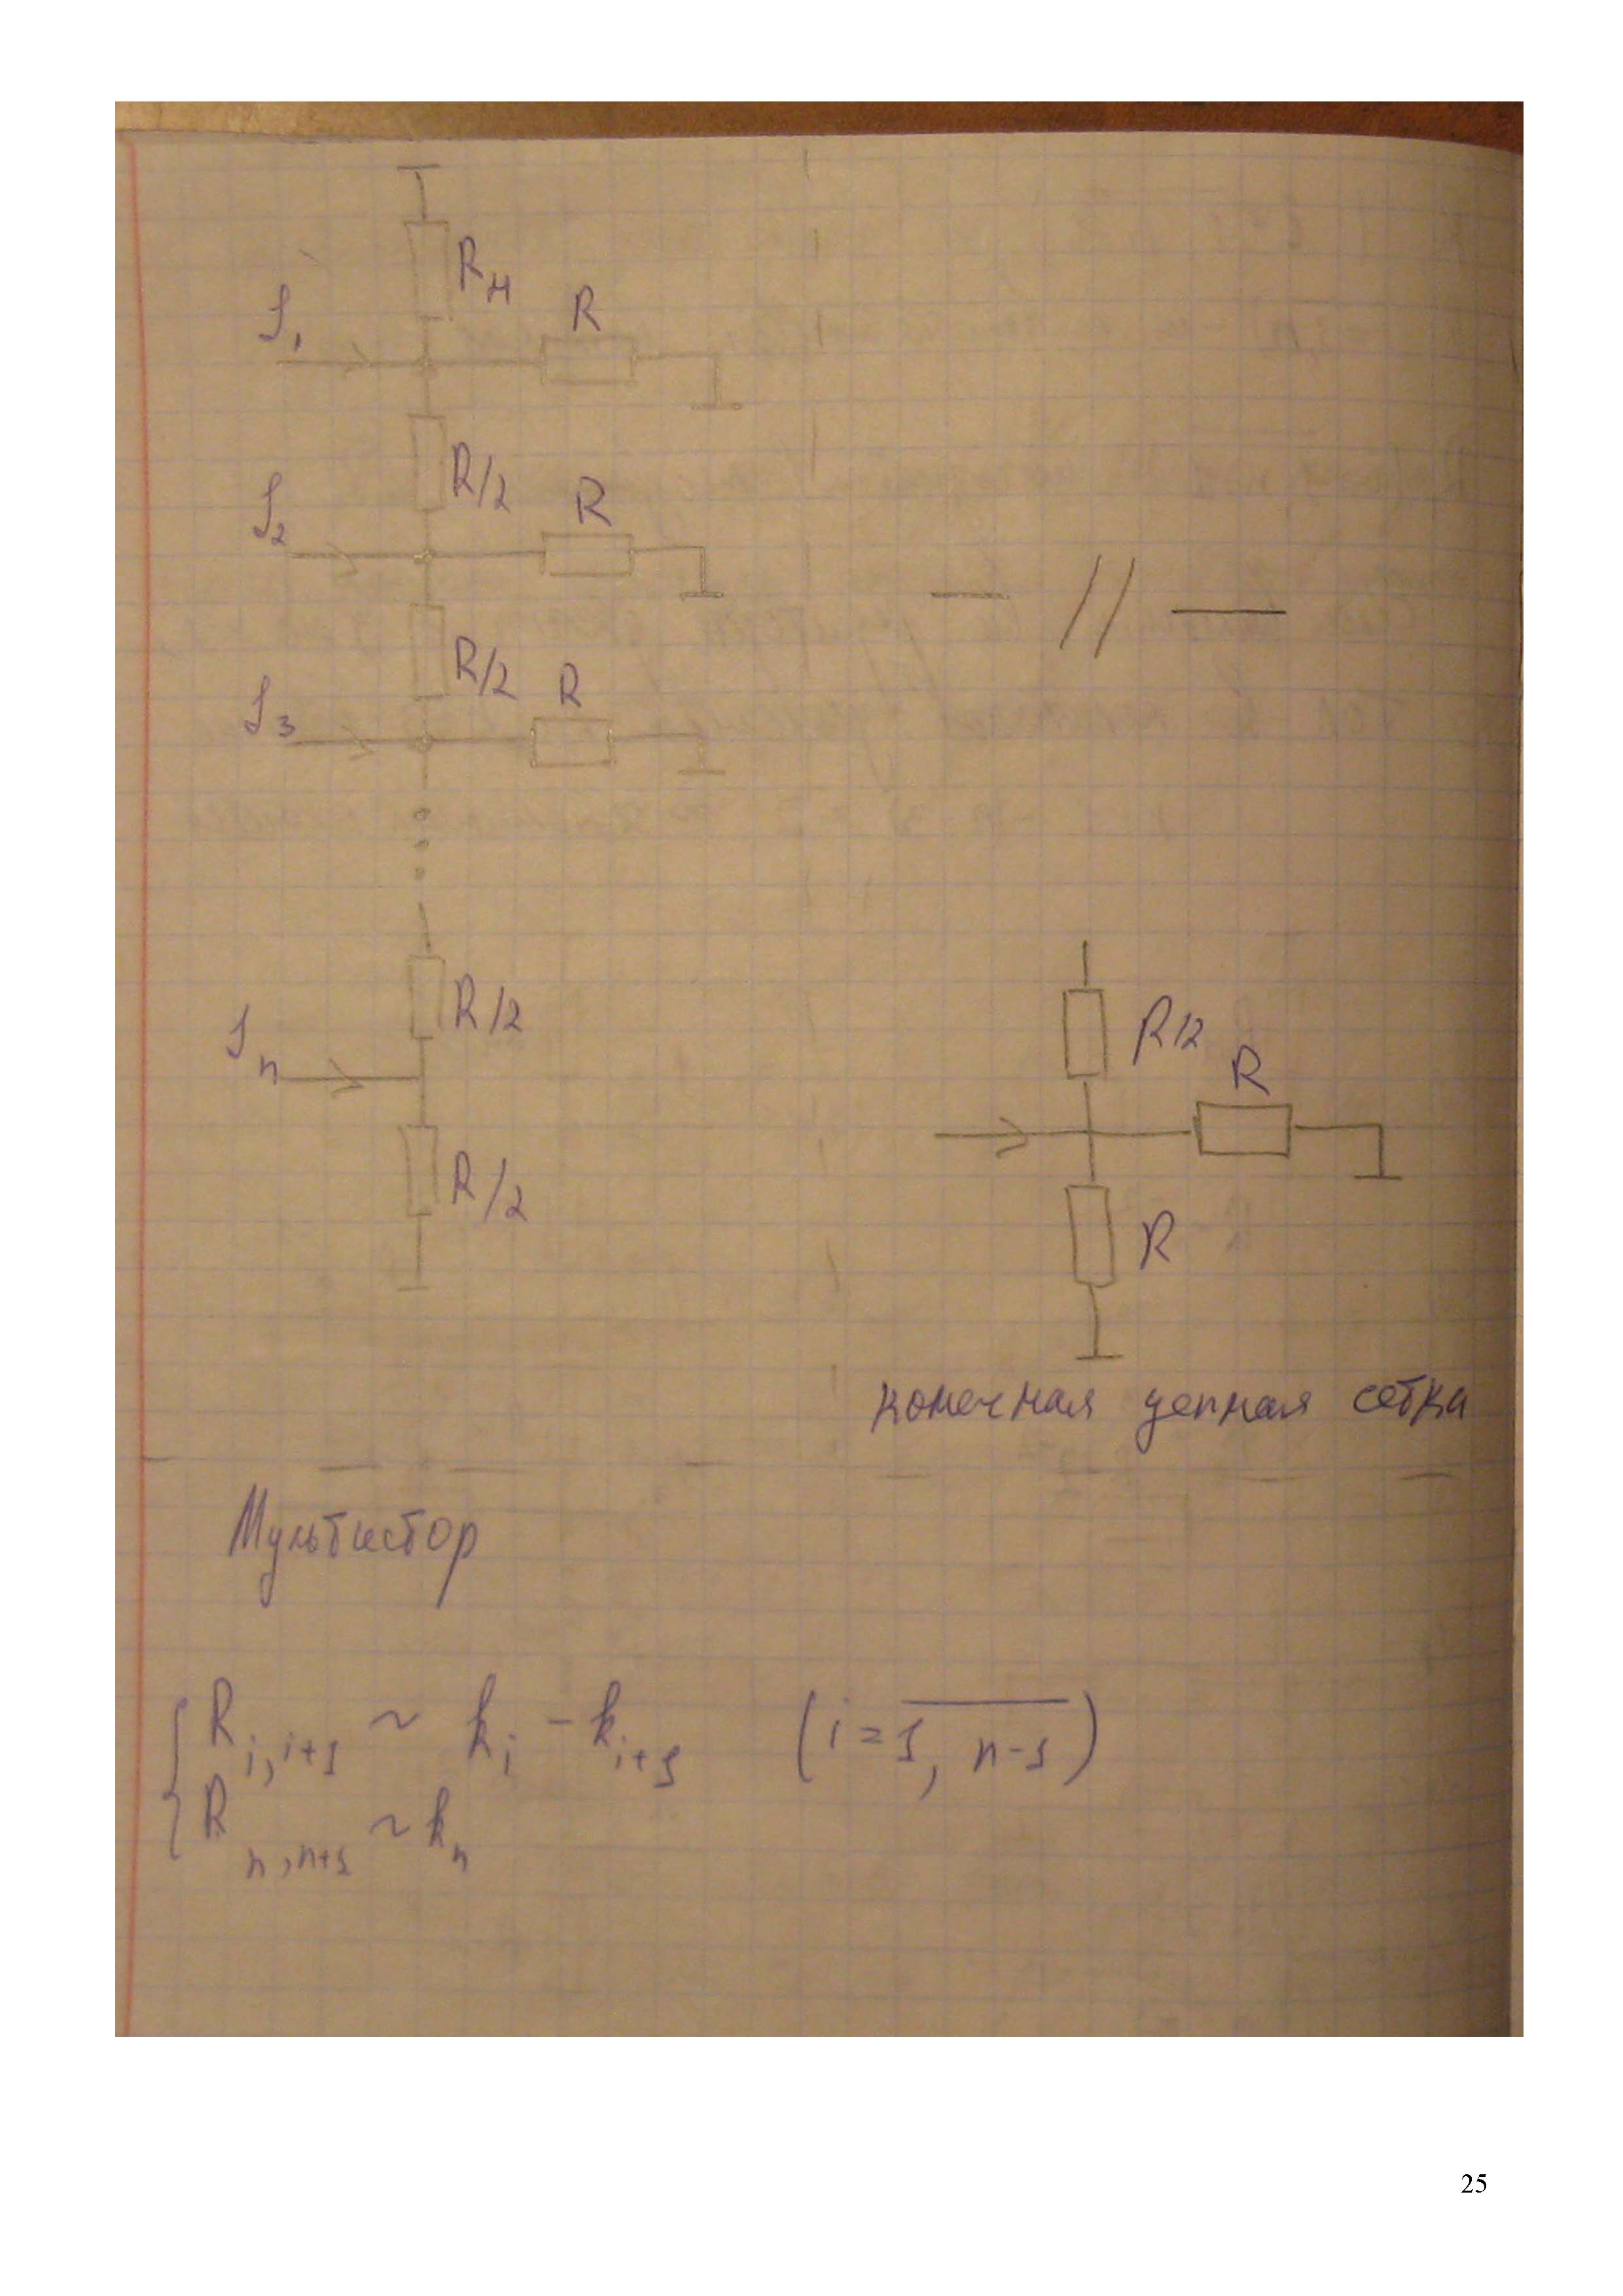 Rн
J₁
R
R/2
J₂
R
R/2
J₃
R
— // —
R/2
Jn
R/2
R/2
R
R
конечная цепная сетка
Мультистор
R i,i+1 ~ k i - k i+1 (i = 1, n-1)
R n,n+1 ~ k n
25